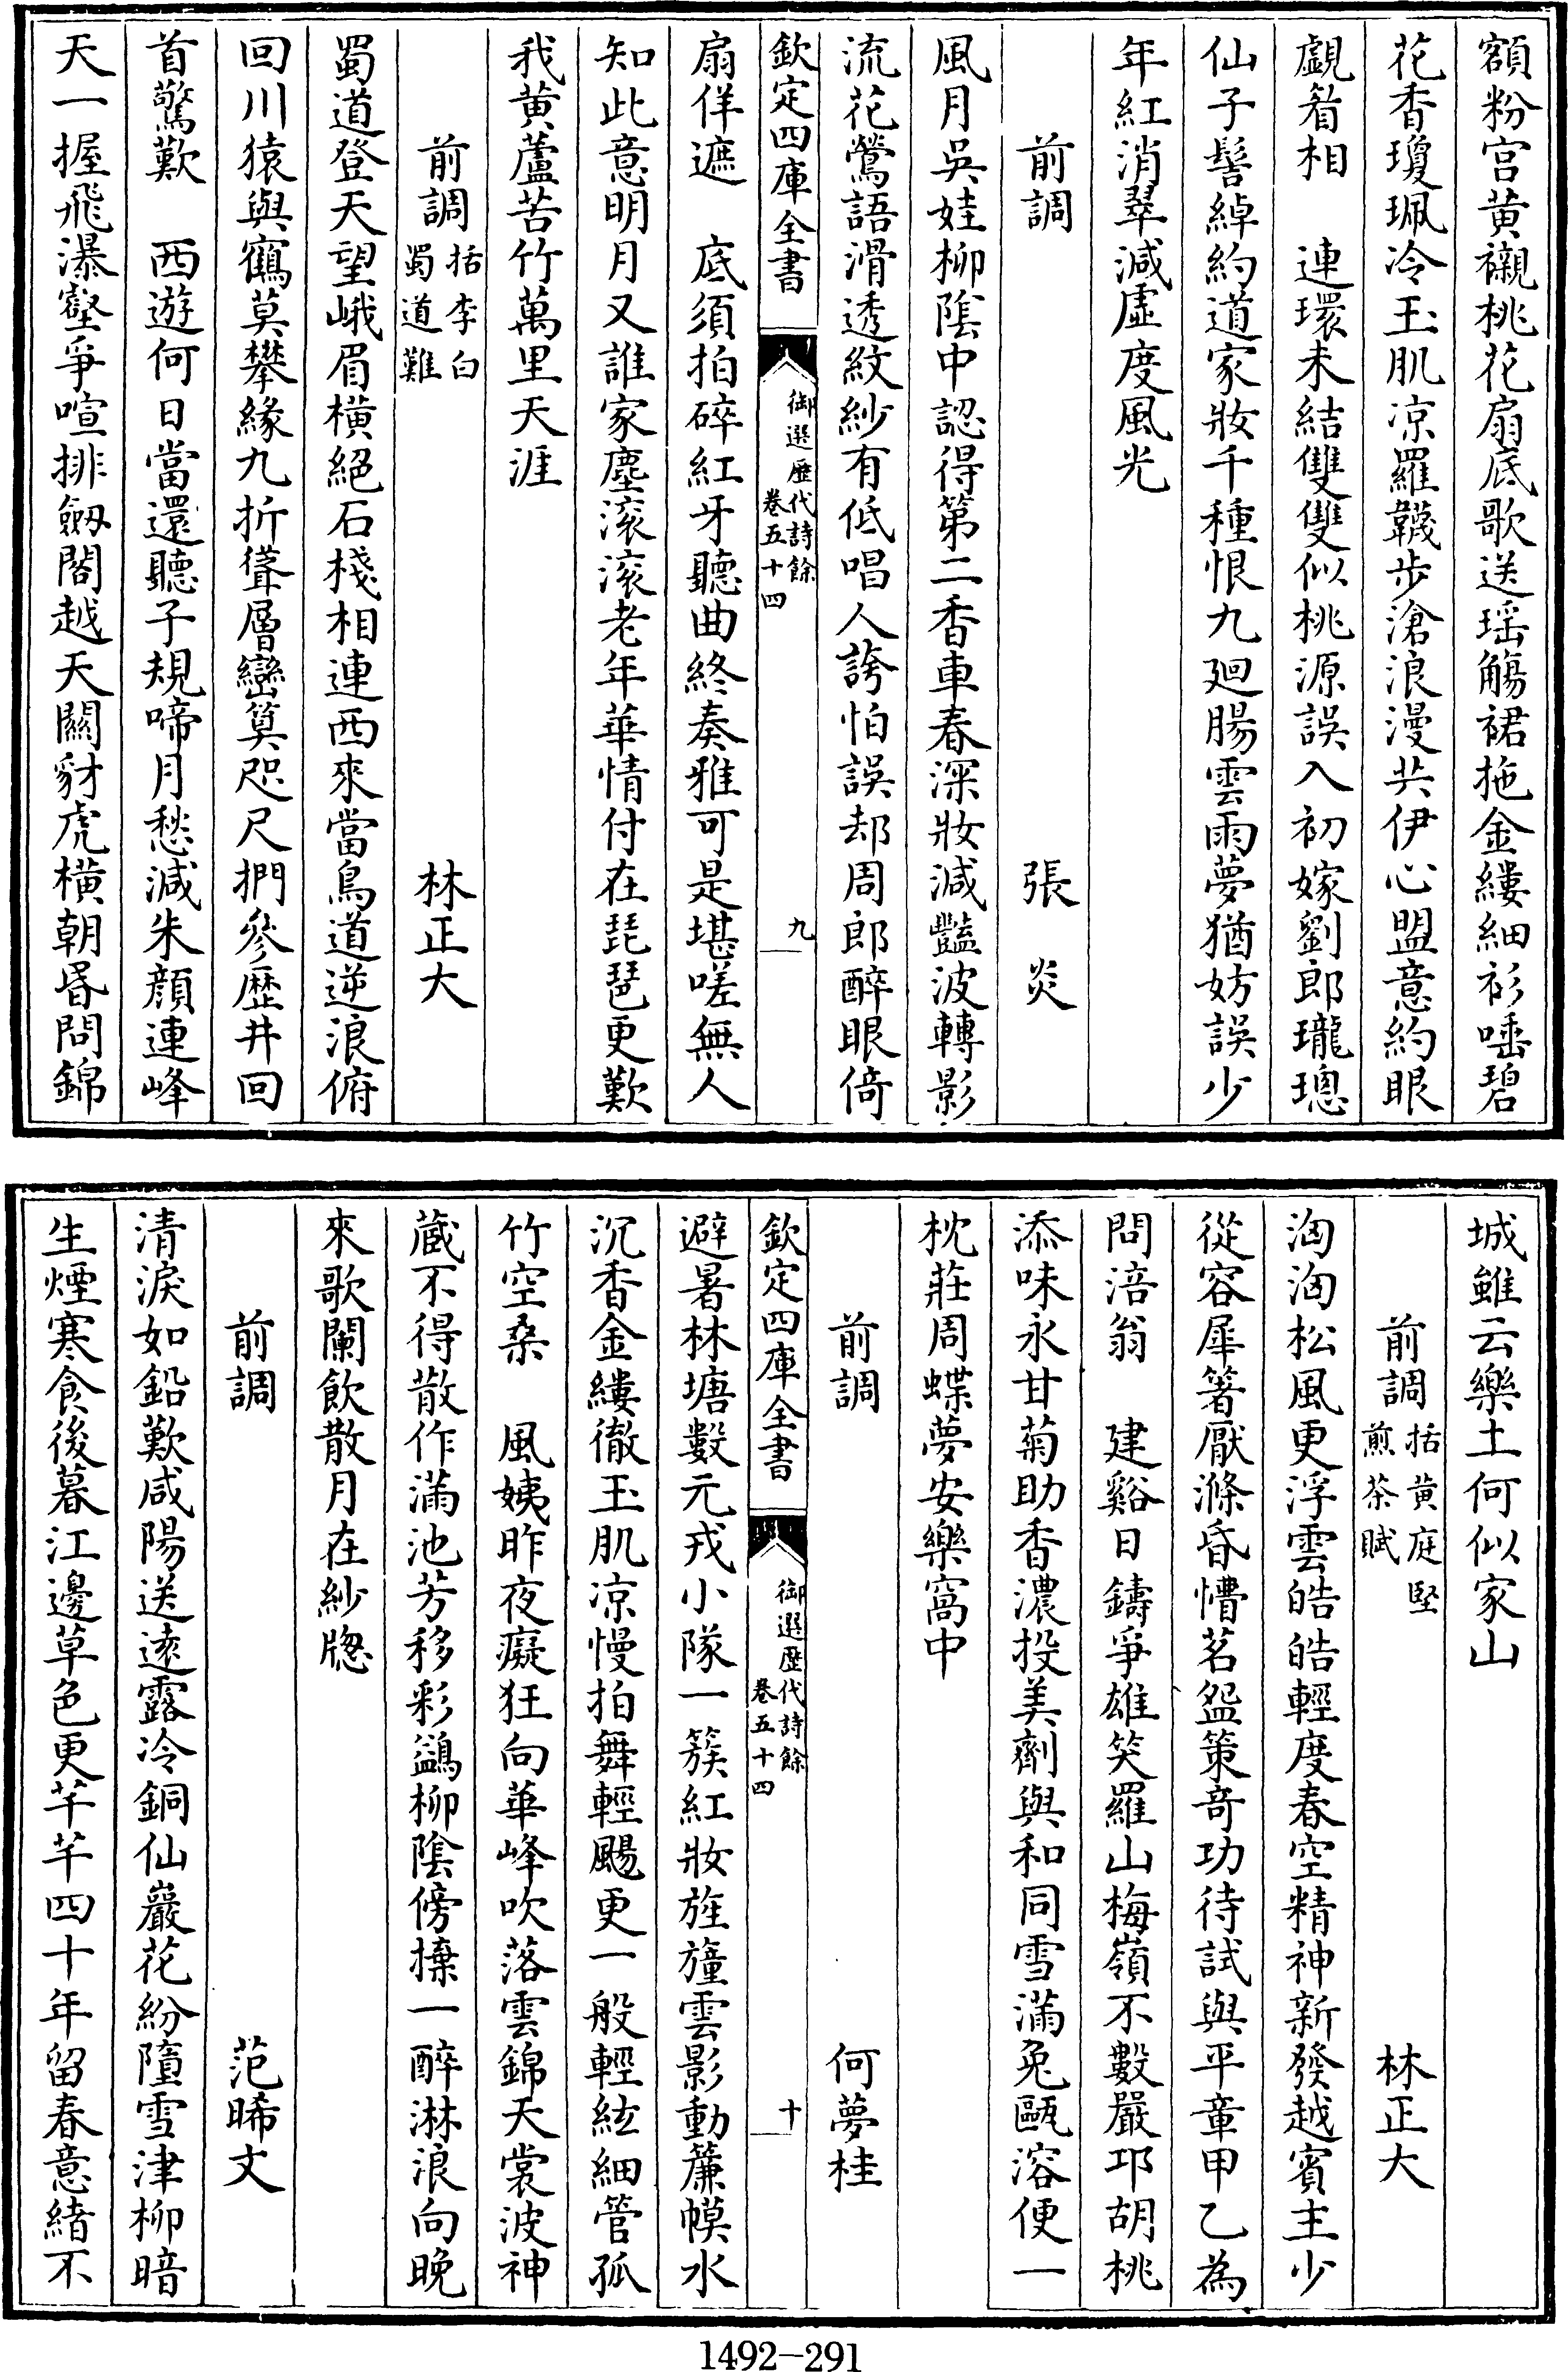 額粉宫黄襯桃花扇底歌送瑶觴裙拖金縷細衫唾碧
花香瓊珮冷玉肌凉羅韈步滄浪漫共伊心盟意約眼
覷着相　連環未結雙雙似桃源誤入初嫁劉郎瓏璁
仙子髻綽約道家妝千種恨九廻腸雲雨夢猶妨誤少
年紅消翠減虛度風光
前調　張炎
風月吳娃柳陰中認得第二香車春深妝減豔波轉影
流花鶯語滑透紋紗有低唱人誇怕誤却周郎醉眼倚
欽定四庫全書　御選歷代詩餘　卷五十四　九
扇佯遮　底須拍碎紅牙聽曲終奏雅可是堪嗟無人
知此意明月又誰家塵滚滚老年華情付在琵琶更歎
我黄蘆苦竹萬里天涯
前調　括李白蜀道難　林正大
蜀道登天望峨眉横絕石棧相連西來當鳥道逆浪俯
回川猿與鶴莫攀緣九折聳層巒筭咫尺捫參歷井回
首驚歎　西遊何日當還聽子規啼月愁減朱顔連峰
天一握飛瀑壑爭喧排劔閣越天關豺虎横朝昏問錦
城雖云樂土何似家山
前調　括黄庭堅煎茶賦　林正大
洶洶松風更浮雲皓皓輕度春空精神新發越賓主少
從容犀箸厭滌昏懵茗盌策奇功待試與平章甲乙為
問涪翁　建谿日鑄爭雄笑羅山梅嶺不數嚴邛胡桃
添味永甘菊助香濃投美劑與和同雪滿兔甌溶便一
枕莊周蝶夢安樂窩中
前調　何夢桂
欽定四庫全書　御選歷代詩餘　卷五十四　十
避暑林塘數元戎小隊一簇紅妝旌幢雲影動簾幙水
沉香金縷徹玉肌凉慢拍舞輕颺更一般輕絃細管孤
竹空桑　風姨昨夜癡狂向華峰吹落雲錦天裳波神
蔵不得散作滿池芳移彩鷁柳陰傍擽一醉淋浪向晚
來歌闌飲散月在紗牕
前調　范晞文
清淚如鉛歎咸陽送遠露冷銅仙巖花紛墮雪津柳暗
生煙寒食後暮江邊草色更芊芊四十年留春意緒不
1492-291